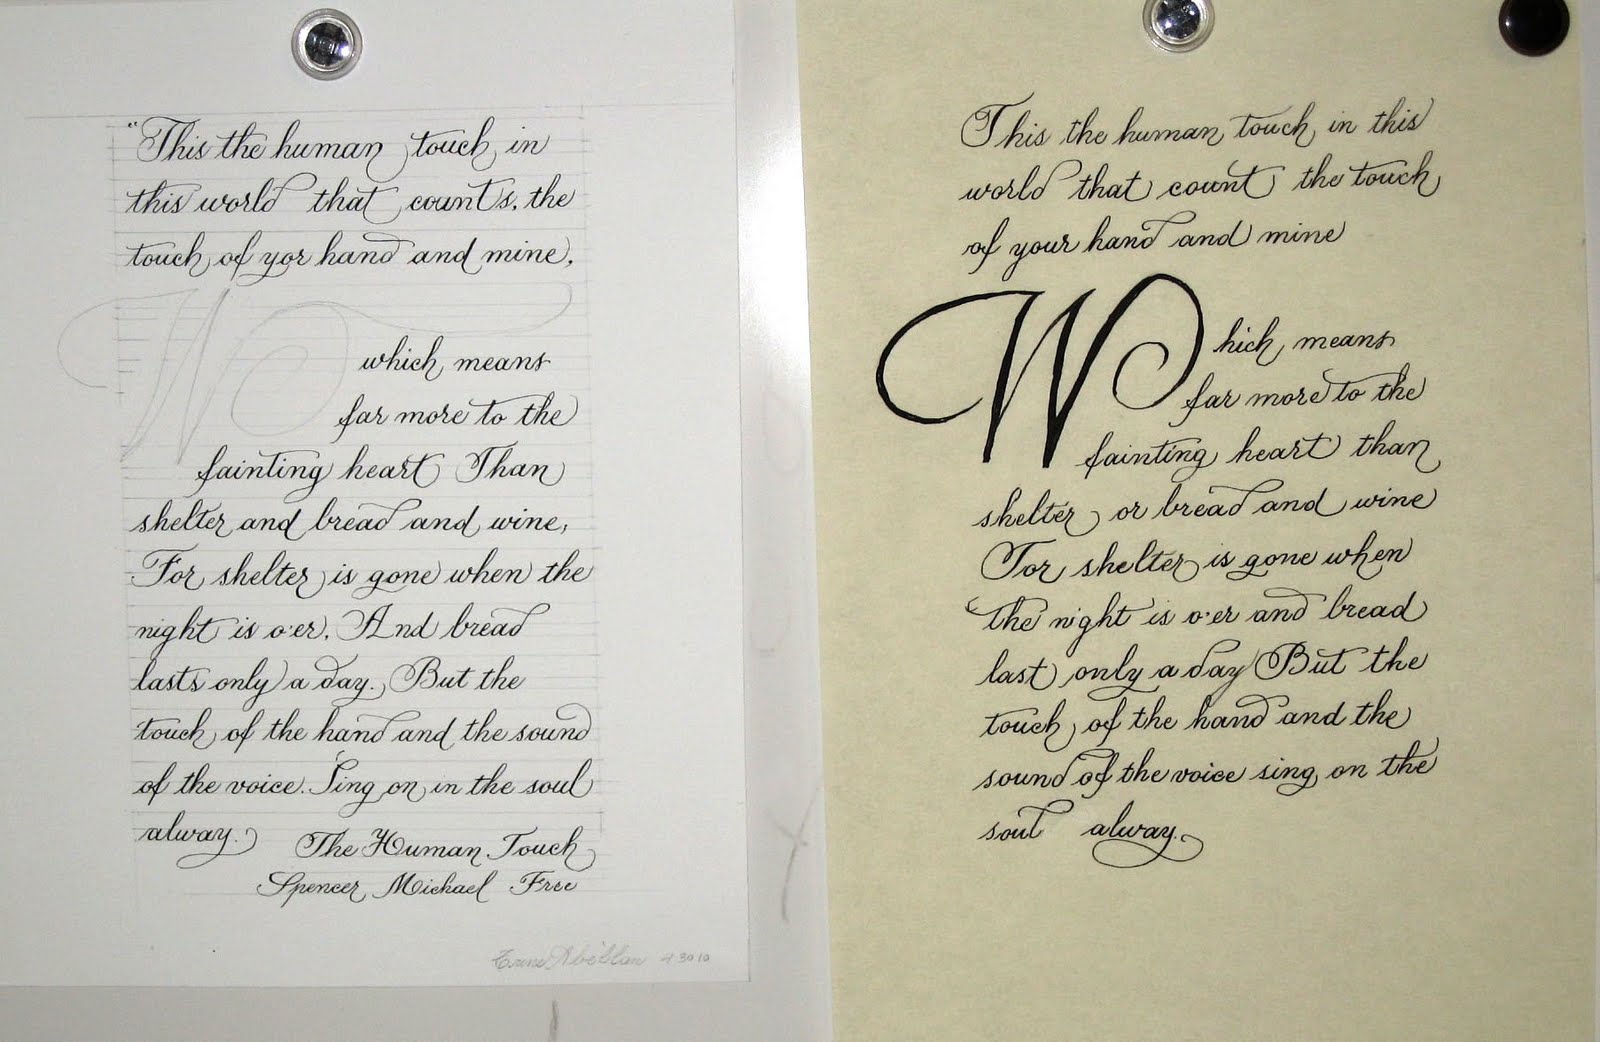 "This the human touch in
this world that counts, the
touch of yor hand and mine,
which means
far more to the
fainting heart Than
shelter and bread and wine,
For shelter is gone when the
night is o'er, And bread
lasts only a day. But the
touch of the hand and the sound
of the voice. Sing on in the soul
alway.
The Human Touch
Spencer Michael Free
4 30 10
This the human touch in this
world that count the touch
of your hand and mine
Which means
far more to the
fainting heart than
shelter or bread and wine
For shelter is gone when
the night is o'er and bread
last only a day But the
touch of the hand and the
sound of the voice sing on the
soul alway.